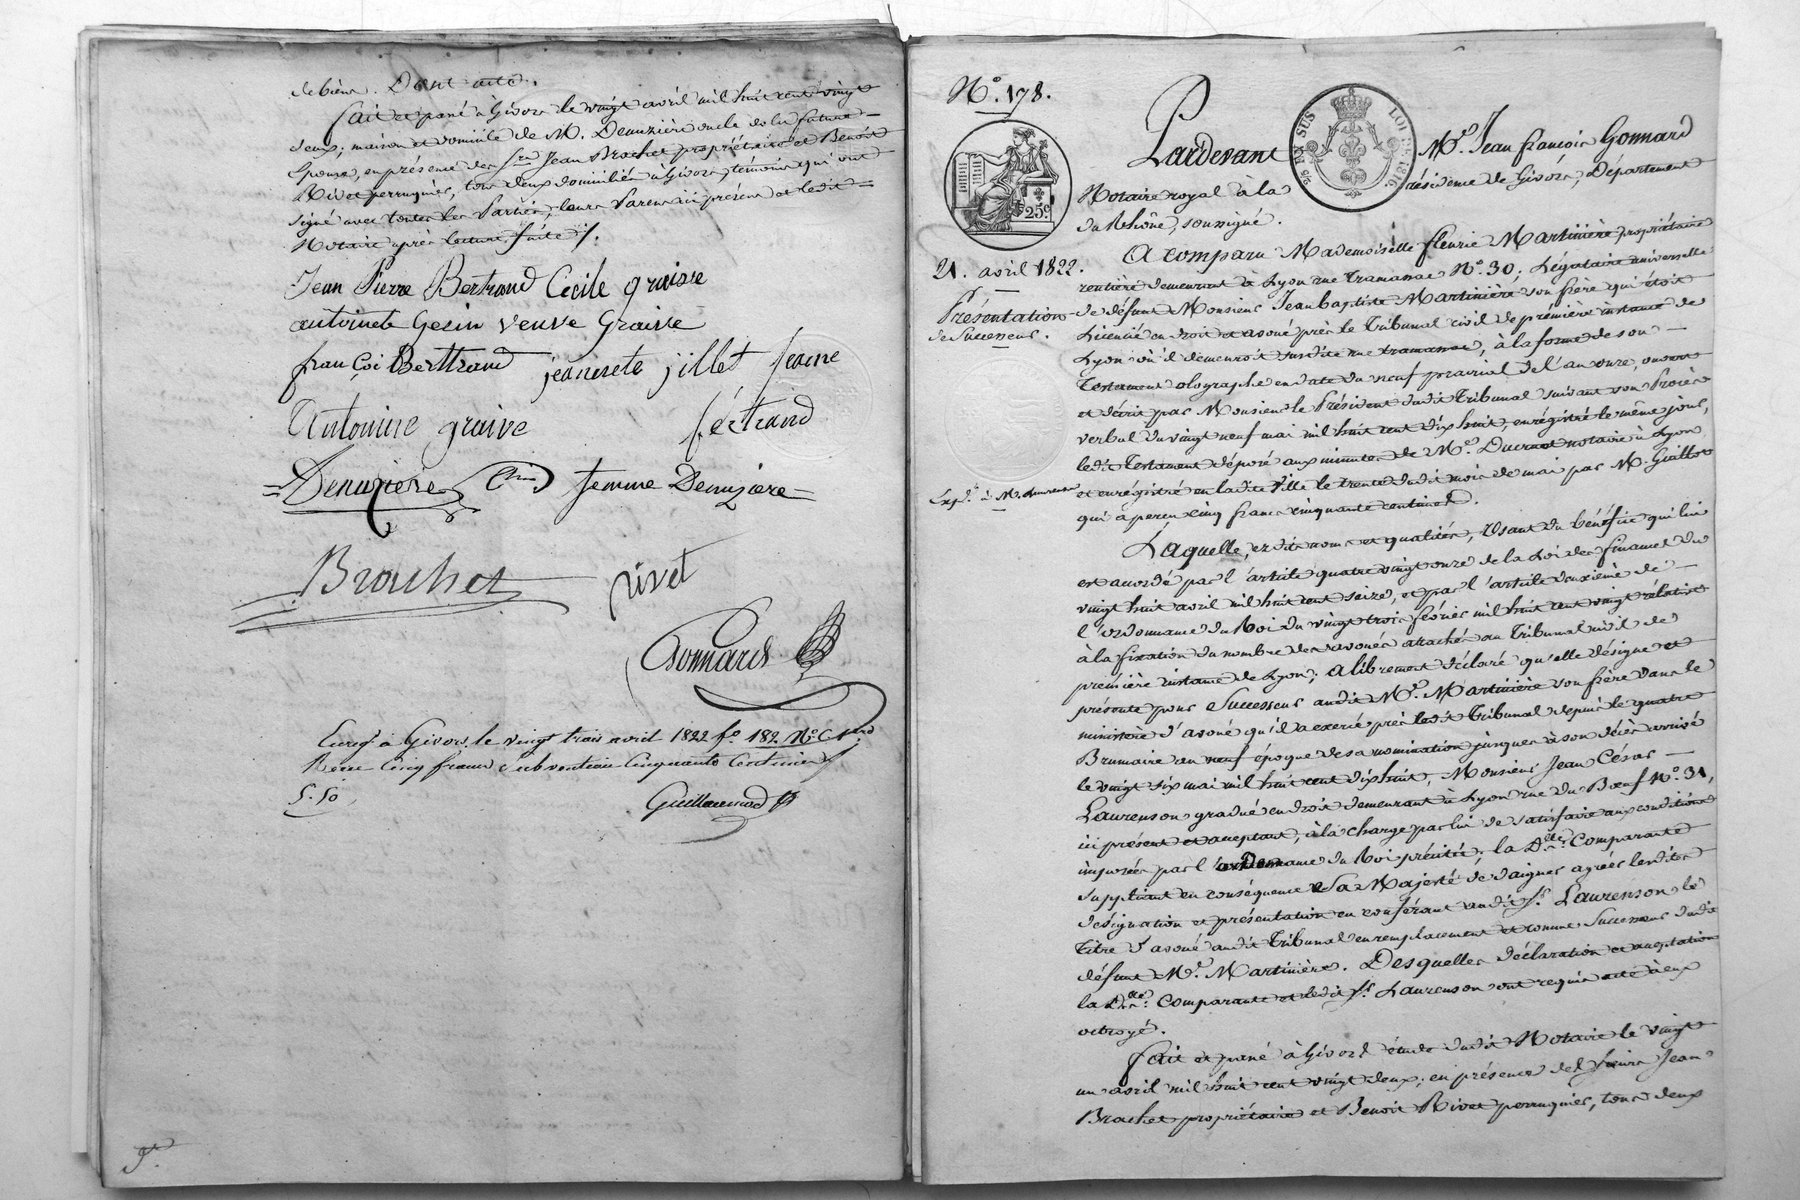 de biens. Dont acte.
fait et passé à Givors le vingt avril mil huit cent vingt
deux; maison et domicile de M. Demzière oncle de la future
Epouse, en présence des Srs Jean Brachet propriétaire et Benoit
Rivet perruquier, tous deux domiciliés à Givors, témoins qui ont
signé avec toutes les Parties, leurs Parens ici présens et ledit
Notaire après lecture faite ./.
Jean Pierre Bertrand Cécile graise
antoinete Gesin veuve Graive
françoi Berttrand jeanenete jillet jeane
Antoinne graive bértrand
Demzière femme Demziere
Brachet rivet
Gonnard
Enregé à Givors, le vingt trois avril 1822 fo 182 No C
Reçu Cinq francs Subvention Cinquante Centimes
5.50
Guillaumod
No. 178.
Pardevant Me. Jean françois Gonnard
25 EN SUS LOI 1816
25c
Notaire royal à la résidence de Givors, Département
du Rhône, soussigné.
21. avril 1822.
Présentation
de Successeur.
A comparu Mademoiselle fleurie Martinière propriétaire
rentière demeurant à Lyon rue tramassac No. 30; Légataire universelle
de défunt Monsieur Jean baptiste Martinière son frère qui étoit
Licencié en droit et avoué près le Tribunal civil de première instance de
Lyon où il demeuroit susdite rue tramassac, à la forme de son
Testament olographe en date du neuf prairial de l'an onze, ouvert
et décrit par Monsieur le Président dudit Tribunal suivant son Procès
verbal du vingt neuf mai mil huit cent dix huit, enregistré le même jour,
ledit Testament déposé aux minutes de Me. Ducruet notaire à Lyon
et enregistré en ladite Ville le trente dudit mois de mai par M. Guillot
qui a perçu cinq francs cinquante centimes.
Expd. à M. Laurenson
Laquelle, esdits noms et qualités, Usant du bénéfice qui lui
est accordé par l'article quatre vingt onze de la Loi des finances du
vingt huit avril mil huit cent seize, et par l'article deuxième de
l'ordonnance du Roi du vingt trois février mil huit cent vingt rélative
à la fixation du nombre des avoués attachés au Tribunal civil de
première instance de Lyon; a librement déclaré qu'elle désigne et
présente pour Successeur audit Me. Martinière son frère dans le
ministère d'avoué qu'il a exercé près ledit Tribunal depuis le quatre
Brumaire an neuf époque de sa nomination jusques à son décès arrivé
le vingt six mai mil huit cent dix huit, Monsieur Jean César
Laurenson gradué en droit demeurant à Lyon rue du Bœuf No. 31,
ici présent et acceptant, à la charge par lui de satisfaire aux conditions
imposées par l'ordonnance du Roi précitée; la Dlle. Comparante
suppliant en conséquence Sa Majesté de daigner agréer lesdites
désignation et présentation en conférant audit Sr. Laurenson le
titre d'avoué audit Tribunal en remplacement et comme Successeur dudit
défunt Me. Martinière. Desquelles déclaration et acceptation
la Dlle. Comparante et ledit Sr. Laurenson ont requis acte à eux
octroyé.
fait et passé à Givors étude dudit Notaire le vingt
un avril mil huit cent vingt deux; en présence des Sieurs Jean
Brachet propriétaire et Benoit Rivet perruquier, tous deux